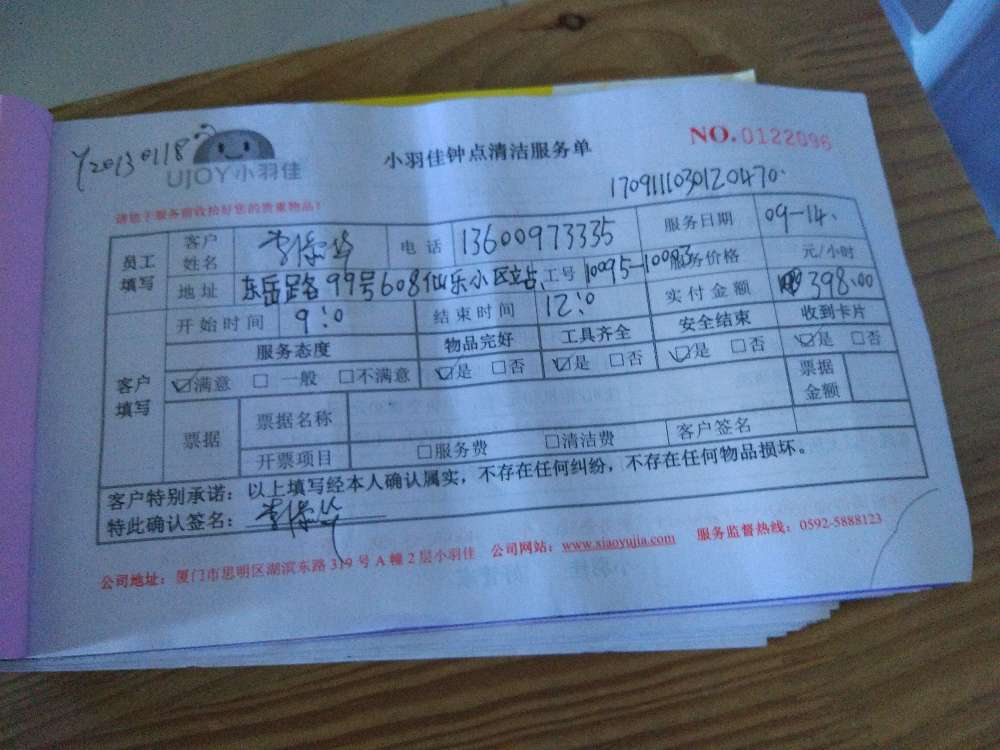 Y20130118
UJOY小羽佳
小羽佳钟点清洁服务单
NO.0122096
170911103012047O.
请您于服务前收拾好您的贵重物品!
员工填写 客户姓名 电话 13600973335 服务日期 09-14.
地址 东岳路99号608仙乐小区 工号 10095-10083 服务价格 元/小时
开始时间 9:0 结束时间 12:0 实付金额 398.00
客户填写 服务态度 物品完好 工具齐全 安全结束 收到卡片
☑满意 □ 一般 □不满意 ☑是 □否 ☑是 □否 ☑是 □否 ☑是 □否
票据 票据名称 票据金额
开票项目 □服务费 □清洁费 客户签名
客户特别承诺：以上填写经本人确认属实，不存在任何纠纷，不存在任何物品损坏。
特此确认签名：
公司地址：厦门市思明区湖滨东路 319 号 A 幢 2 层小羽佳 公司网站：www.xiaoyujia.com 服务监督热线：0592-5888123